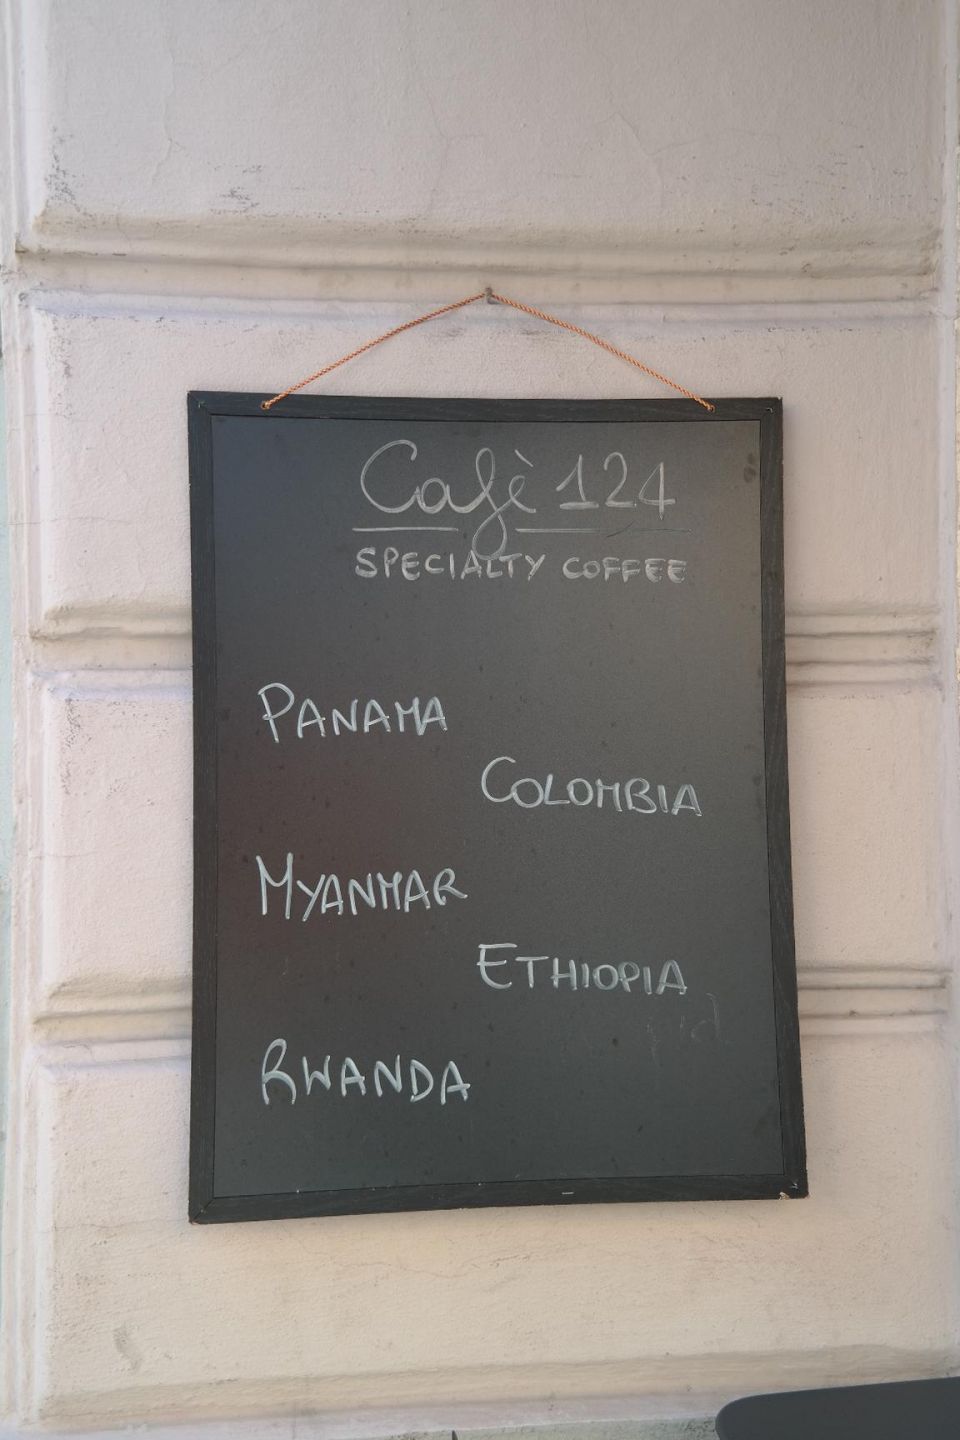 Cafè 124
SPECIALTY COFFEE
PANAMA
COLOMBIA
MYANMAR
ETHIOPIA
RWANDA